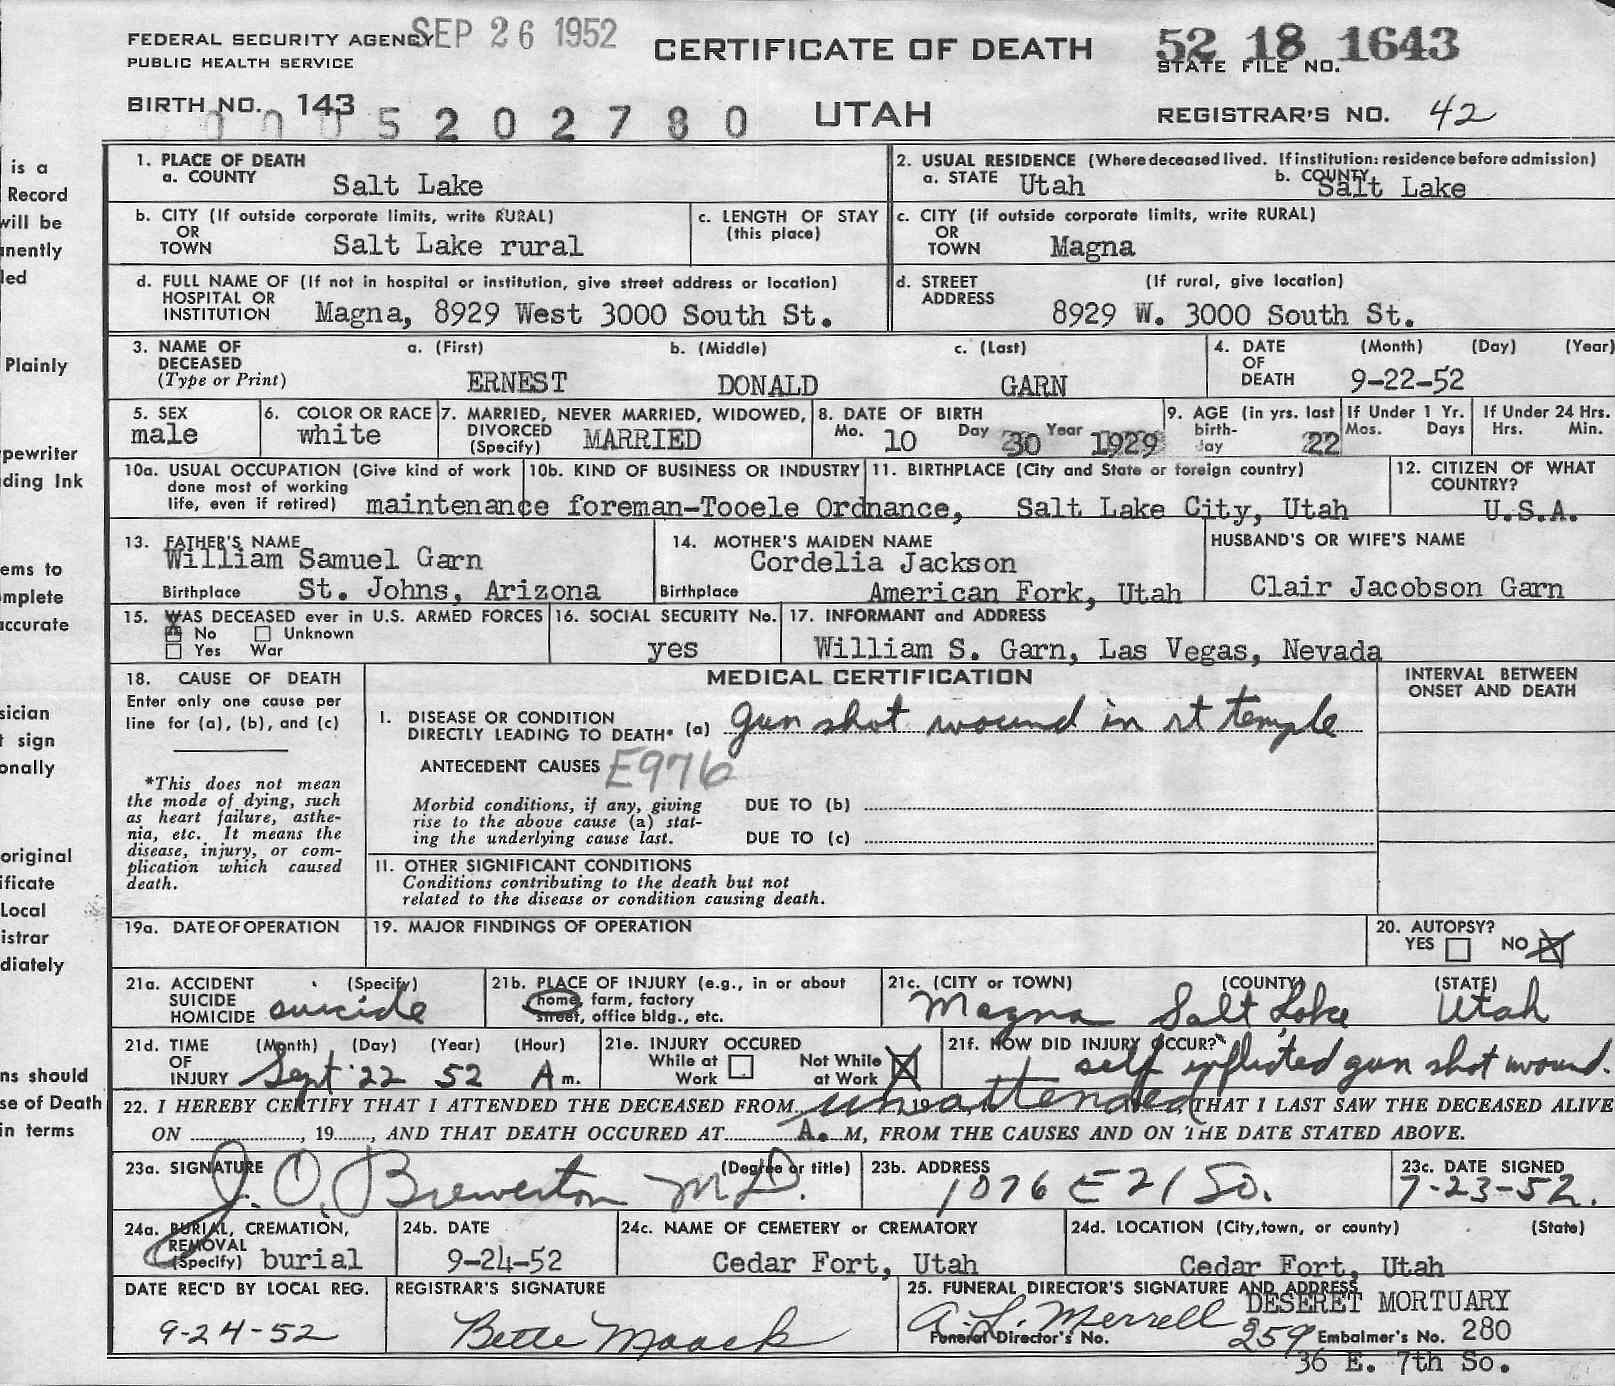 SEP 26 1952
FEDERAL SECURITY AGENCY
PUBLIC HEALTH SERVICE
CERTIFICATE OF DEATH
52 18 1643
STATE FILE NO.
BIRTH NO. 143
5202780
UTAH
REGISTRAR'S NO. 42
is a
Record
will be
nently
led
Plainly
pewriter
ding Ink
ems to
mplete
accurate
sician
t sign
onally
original
ificate
Local
istrar
diately
ns should
se of Death
in terms
1. PLACE OF DEATH
a. COUNTY Salt Lake
2. USUAL RESIDENCE (Where deceased lived. If institution: residence before admission)
a. STATE Utah b. COUNTY Salt Lake
b. CITY (If outside corporate limits, write RURAL)
OR
TOWN Salt Lake rural
c. LENGTH OF STAY
(this place)
c. CITY (if outside corporate limits, write RURAL)
OR
TOWN Magna
d. FULL NAME OF (If not in hospital or institution, give street address or location)
HOSPITAL OR
INSTITUTION Magna, 8929 West 3000 South St.
d. STREET (If rural, give location)
ADDRESS 8929 W. 3000 South St.
3. NAME OF DECEASED
(Type or Print)
a. (First) b. (Middle) c. (Last)
ERNEST DONALD GARN
4. DATE OF DEATH (Month) (Day) (Year)
9-22-52
5. SEX
male
6. COLOR OR RACE
white
7. MARRIED, NEVER MARRIED, WIDOWED,
DIVORCED
(Specify) MARRIED
8. DATE OF BIRTH
Mo. 10 Day 30 Year 1929
9. AGE (in yrs. last
birth-
day 22
If Under 1 Yr.
Mos. Days
If Under 24 Hrs.
Hrs. Min.
10a. USUAL OCCUPATION (Give kind of work
done most of working
life, even if retired)
10b. KIND OF BUSINESS OR INDUSTRY
maintenance foreman-Tooele Ordnance,
11. BIRTHPLACE (City and State or foreign country)
Salt Lake City, Utah
12. CITIZEN OF WHAT
COUNTRY?
U.S.A.
13. FATHER'S NAME
William Samuel Garn
Birthplace St. Johns, Arizona
14. MOTHER'S MAIDEN NAME
Cordelia Jackson
Birthplace American Fork, Utah
HUSBAND'S OR WIFE'S NAME
Clair Jacobson Garn
15. WAS DECEASED ever in U.S. ARMED FORCES
No Unknown
Yes War
16. SOCIAL SECURITY No.
yes
17. INFORMANT and ADDRESS
William S. Garn, Las Vegas, Nevada
18. CAUSE OF DEATH
Enter only one cause per
line for (a), (b), and (c)
*This does not mean
the mode of dying, such
as heart failure, asthe-
nia, etc. It means the
disease, injury, or com-
plication which caused
death.
MEDICAL CERTIFICATION
INTERVAL BETWEEN
ONSET AND DEATH
I. DISEASE OR CONDITION
DIRECTLY LEADING TO DEATH* (a) gun shot wound in rt temple
ANTECEDENT CAUSES E976
Morbid conditions, if any, giving
rise to the above cause (a) stat-
ing the underlying cause last.
DUE TO (b)
DUE TO (c)
11. OTHER SIGNIFICANT CONDITIONS
Conditions contributing to the death but not
related to the disease or condition causing death.
19a. DATE OF OPERATION
19. MAJOR FINDINGS OF OPERATION
20. AUTOPSY?
YES NO
21a. ACCIDENT (Specify)
SUICIDE
HOMICIDE suicide
21b. PLACE OF INJURY (e.g., in or about
home, farm, factory
street, office bldg., etc.
21c. (CITY or TOWN) (COUNTY) (STATE)
Magna Salt Lake Utah
21d. TIME (Month) (Day) (Year) (Hour)
OF
INJURY Sept 22 52 A m.
21e. INJURY OCCURED
While at Work
Not While at Work
21f. HOW DID INJURY OCCUR?
self inflicted gun shot wound.
22. I HEREBY CERTIFY THAT I ATTENDED THE DECEASED FROM unattended 19 THAT I LAST SAW THE DECEASED ALIVE
ON , 19 , AND THAT DEATH OCCURED AT A. M, FROM THE CAUSES AND ON THE DATE STATED ABOVE.
23a. SIGNATURE (Degree or title)
J. O. Brewerton M.D.
23b. ADDRESS
1076 E 21 So.
23c. DATE SIGNED
7-23-52.
24a. BURIAL, CREMATION,
REMOVAL
(Specify) burial
24b. DATE
9-24-52
24c. NAME OF CEMETERY or CREMATORY
Cedar Fort, Utah
24d. LOCATION (City, town, or county) (State)
Cedar Fort, Utah
DATE REC'D BY LOCAL REG.
9-24-52
REGISTRAR'S SIGNATURE
Bette Maack
25. FUNERAL DIRECTOR'S SIGNATURE AND ADDRESS
A. L. Merrell DESERET MORTUARY
Funeral Director's No. 259 Embalmer's No. 280
36 E. 7th So.